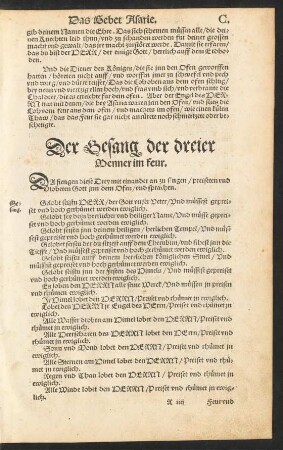 Das Gebet Asarie. C.
gib deinem Namen die Ehre. Das sich schemen müssen alle / die dei-
nen Knechten leid thun / und zu schanden werden für deiner grossen
macht und gewalt / das jre macht zustöret werde. Damit sie erfaren /
das du bist der HERR / der einige Gott / herrlich auff dem Erdbo-
den.
Und die Diener des Königes / die sie inn den Ofen geworffen
hatten / höreten nicht auff / und worffen imer zu schwefel und pech
und werg / und dürre reiser / Das die Lohe oben aus dem Ofen schlug /
bey neun und viertzig ellen hoch / und fras umb sich / und verbrante die
Chaldeer / die es erreichte für dem ofen. Aber der Engel des HER-
RN trat mit denen / die bey Asaria waren jnn den Ofen / und sties die
Lohe vom feur aus dem ofen / und machts im ofen / wie einen külen
Thaw / das das feur sie gar nicht anrürete noch schmertzet oder be-
schedigte.
Der Gesang der dreier
Menner im feur.
DA fiengen diese Drey mit einander an zu singen / preiseten und
lobeten Gott jnn dem Ofen / und sprachen.
Ge-
sang.
Gelobt seistu HERR / der Gott unser Veter / Und müssest geprei-
set und hoch gerhümet werden ewiglich.
Gelobt sey dein herrlicher und heiliger Name / Und müsse geprei-
set und hoch gerhümet werden ewiglich.
Gelobt seistu jnn deinem heiligen / herlichen Tempel / Und müs-
sest gepreiset und hoch gerhümet werden ewiglich.
Gelobt seistu der du sitzest auff dem Cherubim / und sihest jnn die
Tieffe / Und müssest gepreiset und hoch gerhümet werden ewiglich.
Gelobt seistu auff deinem herrlichen königlichen Stuel / Und
müssest gepreiset und hoch gerhümet werden ewiglich.
Gelobt seistu jnn der Festen des Himels / Und müssest gepreiset
und hoch gerhümet werden ewiglich.
Es loben den HERRN alle seine Werck / Und müssen jn preisen
und rhümen ewiglich.
Jr Himel lobet den HERRN / Preiset und rhümet jn ewiglich.
Lobet den HERRN jr Engel des HERRN / Preiset und rhümet jn
ewiglich.
Alle Wasser droben am Himel lobet den HERRN / Preiset und
rhümet jn ewiglich.
Alle Heerscharen des HERRN lobet den HErrn / Preiset und
rhümet jn ewiglich.
Sonn und Mond lobet den HERRN / Preiset und rhümet jn
ewiglich.
Alle Sternen am Himel lobet den HERRN / Preiset und rhü-
met jn ewiglich.
Regen und Thaw lobet den HERRN / Preiset und rhümet jn
ewiglich.
Alle Winde lobet den HERRN / Preiset und rhümet jn ewig-
lich.
R iiij Feur und